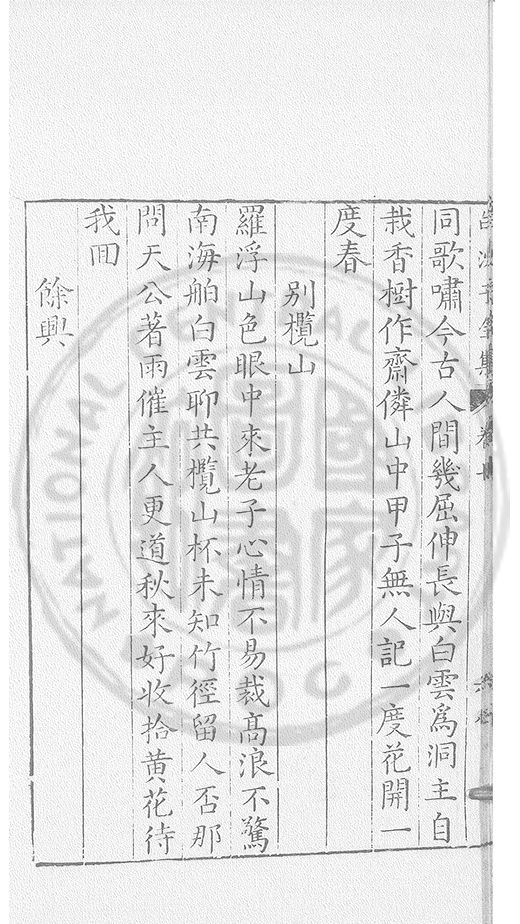 同歌嘯今古人間幾屈伸長與白雲爲洞主自
栽香樹作齋隣山中甲子無人記一度花開一
度春
別欖山
羅浮山色眼中來老子心情不易裁高浪不驚
南海舶白雲聊共欖山杯未知竹徑留人否那
問天公著雨催主人更道秋來好收拾黄花待
我回
餘興